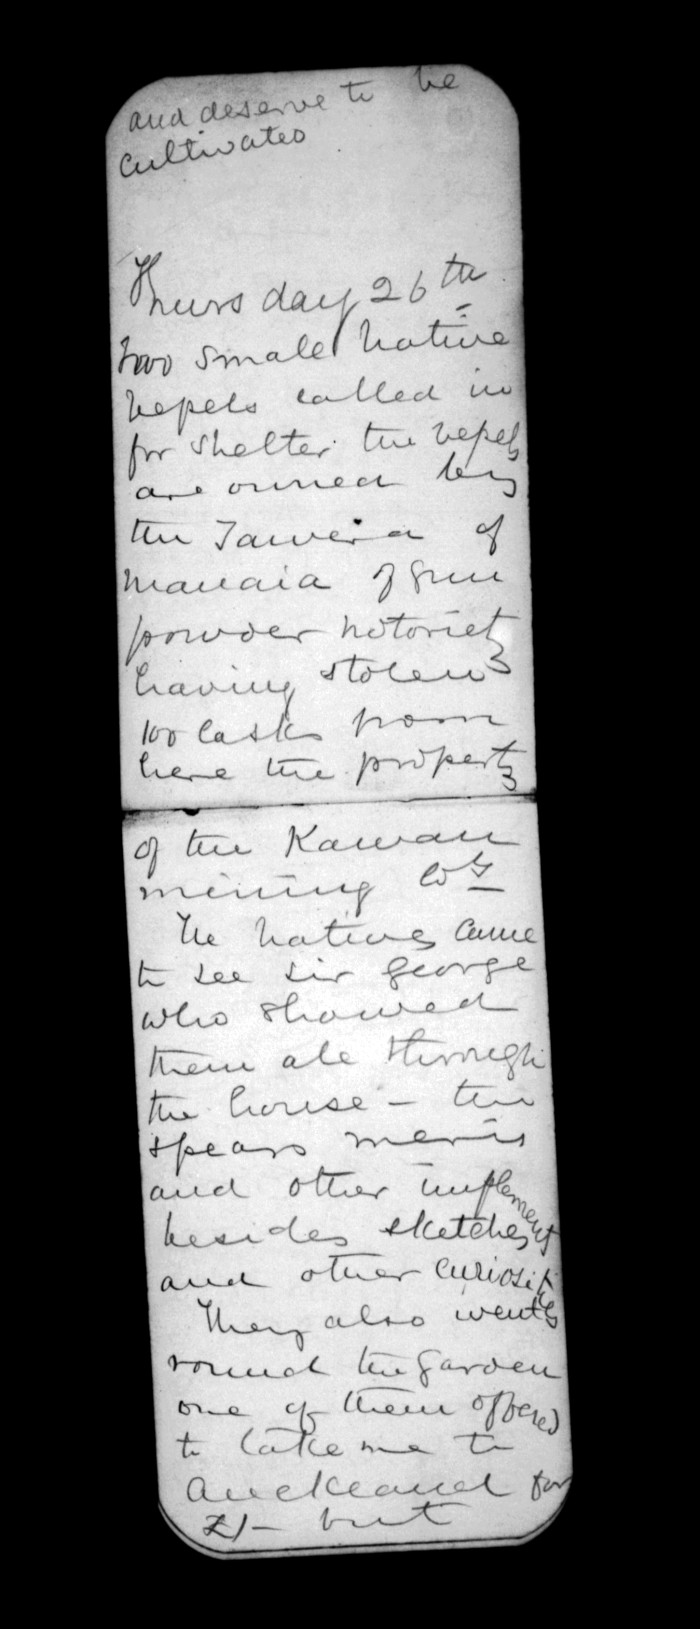 and deserve to be
cultivated
Thursday 26th
two small native
vessels called in
for shelter the vessels
are owned by
the Tawera of
Manaia of gun
powder notoriety
having stolen
100 casks from
here the property
of the Kawau
mining Coy
The natives came
to see Sir George
who showed
them all through
the house - the
spears meris
and other implements
besides sketches
and other curiosities
They also went
round the garden
one of them offered
to take me to
Auckland for
£1- but